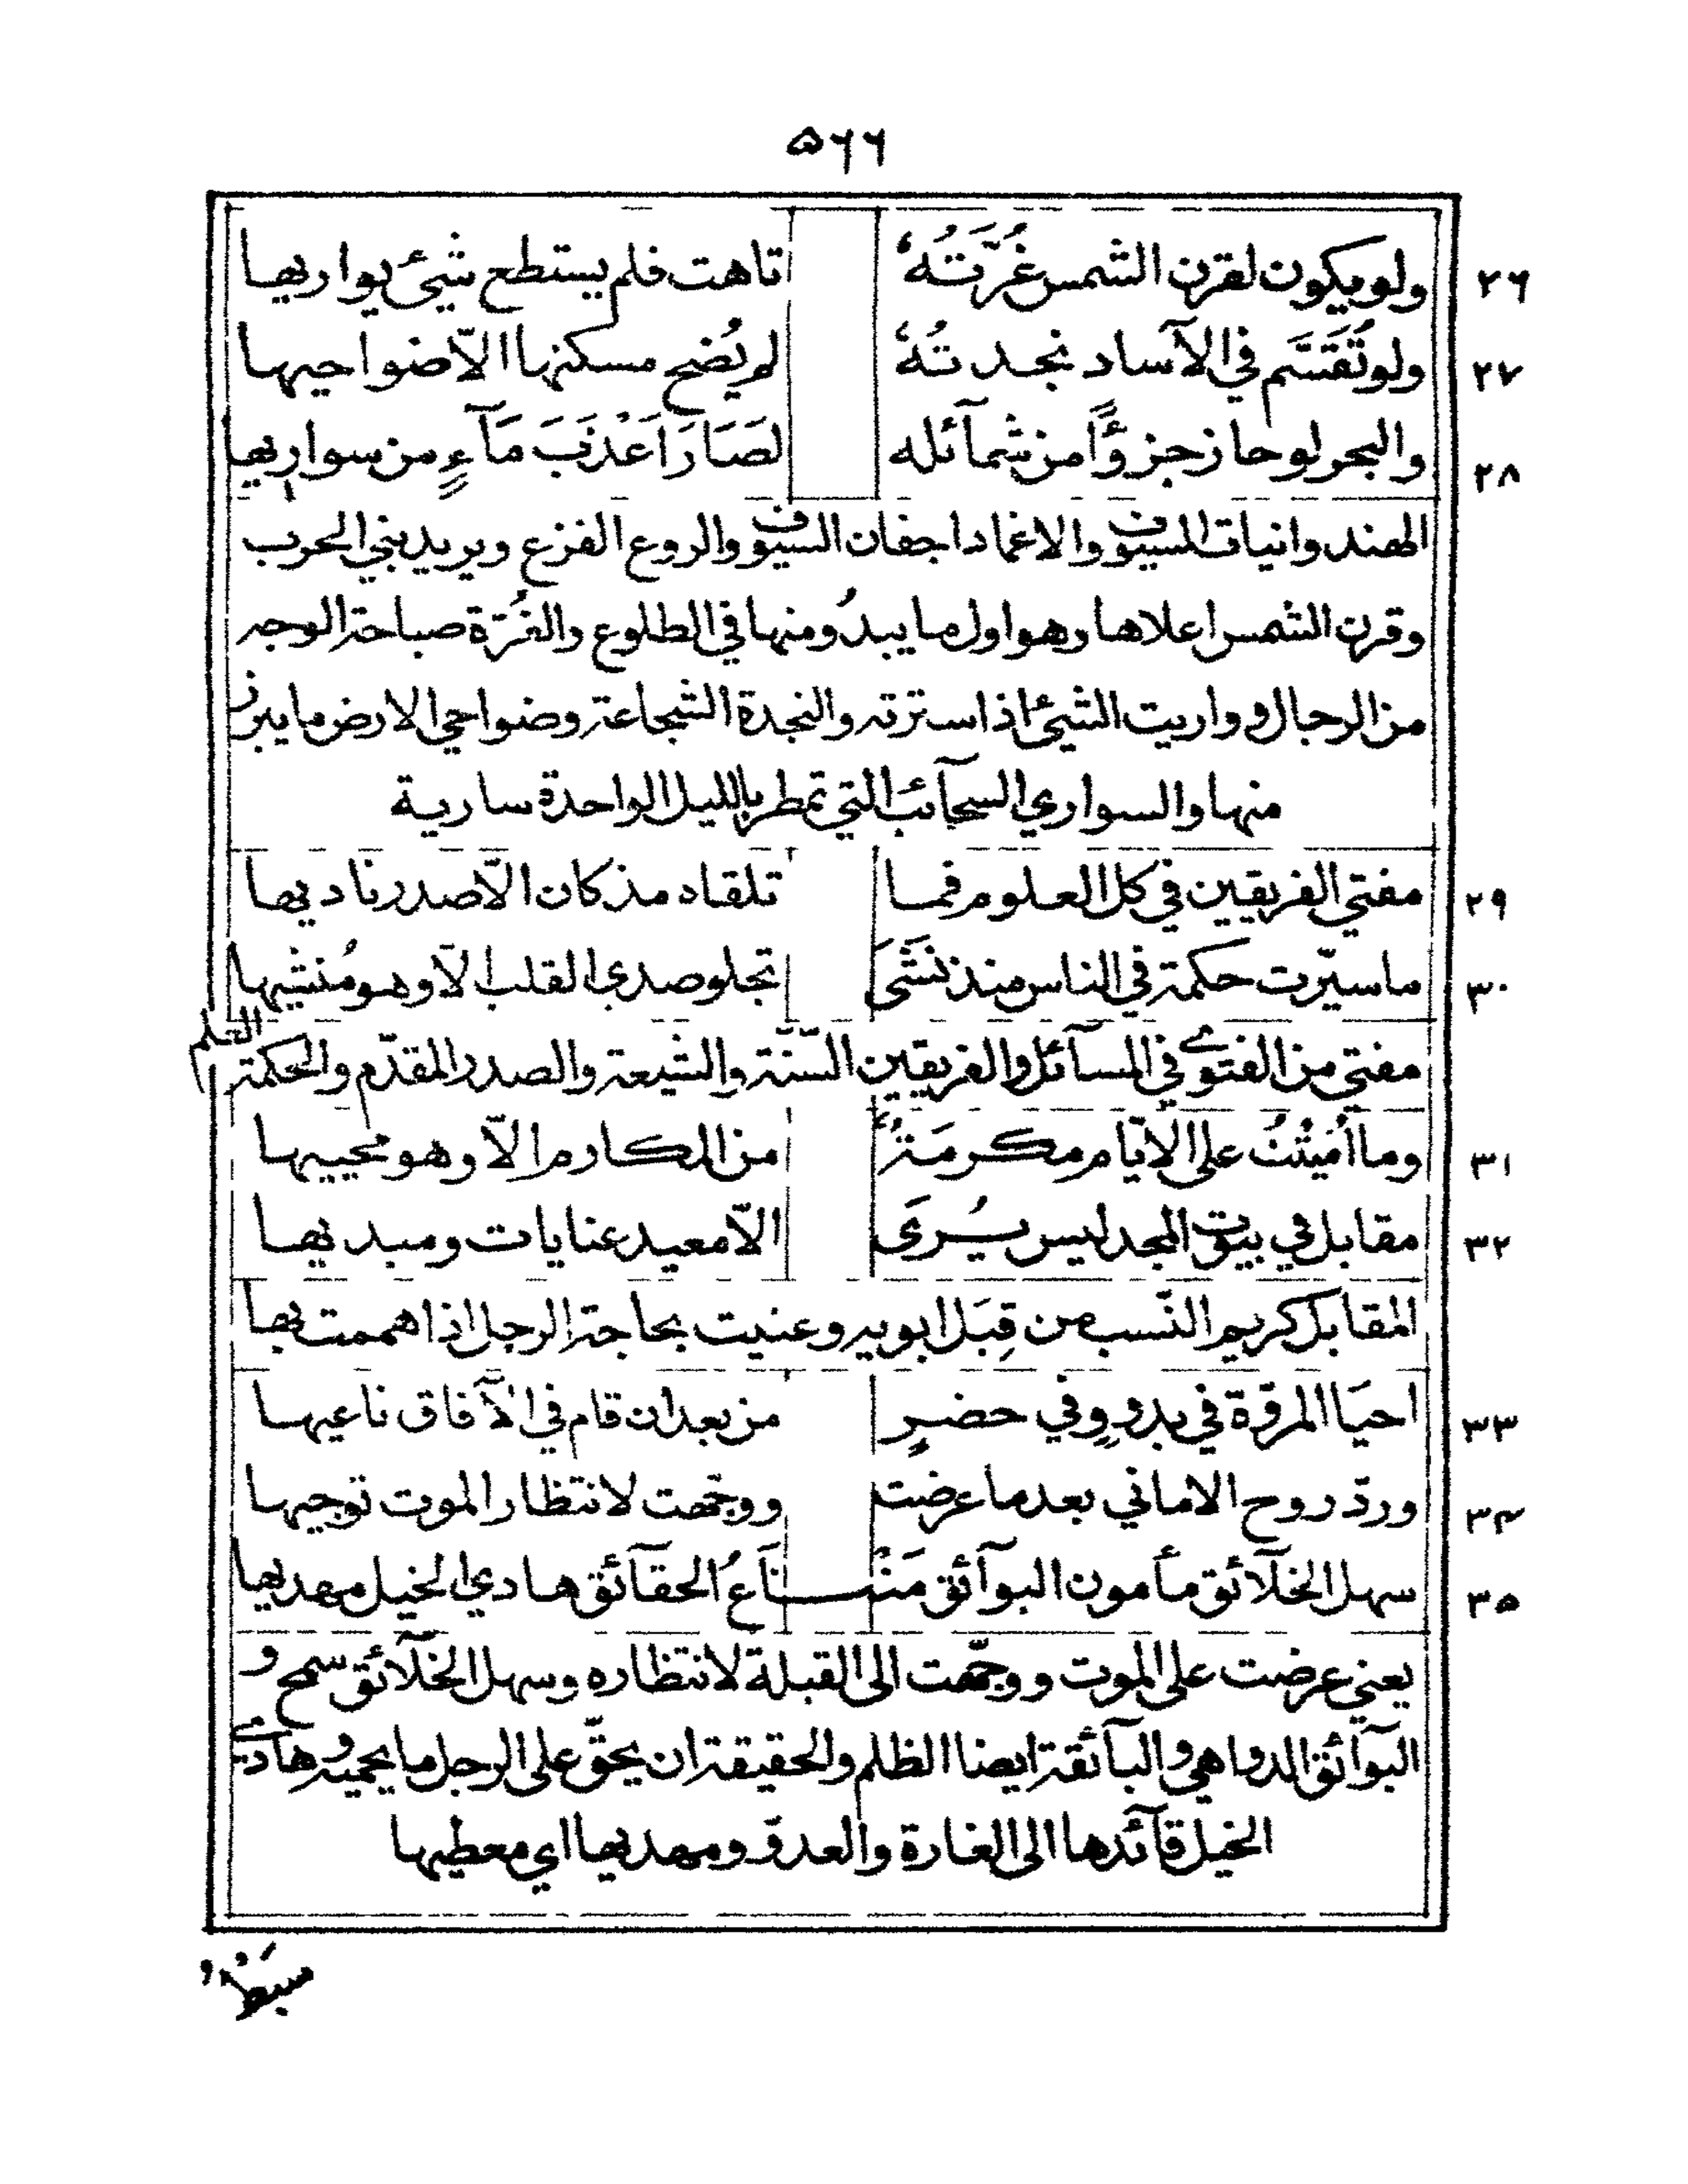 ۵۶۶
۲۶ ولو يكون لقرن الشمس غُرَّتُهُ تاهت فلم يستطع شيئ يواريها
۲۷ ولو تُقَسَّم في الآساد نجدتُهُ لم يُضح مسكنها الّا ضواحيها
۲۸ والبحر لو حاز جزؤًا من شمآئله لصَارَ اَعْذَبَ مَآءٍ من سواريها
الهندوانيات السيوف والاغماد اجفان السيوف والروع الفزع ويريد بني الحرب
وقرن الشمس اعلاها وهو اول ما يبدُو منها في الطلوع والغُرّة صباحة الوجه
من الرجال و واريت الشيئ اذا سترته والنجدة الشجاعة وضواحي الارض ما يبرز
منها والسواري السحآئب التي تمطر بالليل الواحدة سارية
۲۹ مفتي الفريقين في كل العلوم فما تلقاه مذ كان الّا صدر ناديها
۳۰ ما سيّرت حكمة في الناس منذ نَشَىَ تجلو صدي القلب الّا وهو مُنشيها
مفتي من الفتوے في المسآئل والفريقين السّنّة والشيعة والصدر المقدّم والحكمة العلم
۳۱ وما اُمِيْتَتْ على الايّام مكرمَةٌ من المكارم الّا وهو محييها
۳۲ مقابل في بيوت المجد ليس يُرَى الّا معيد عنايات ومبديها
المقابل كريم النّسب من قِبَل ابويه وعنيت بحاجة الرجل اذا هممت بها
۳۳ احيَا المروّة في بدوٍ وفي حضرٍ من بعد ان قام في الآفاق ناعيها
۳۴ وردّ روح الاماني بعد ما عرضت ووجّهت لانتظار الموت توجيها
۳۵ سهل الخلآئق مأمون البوآئق مَنْـنَاعُ الحقآئق هادي الخيل مهديها
يعني عرضت على الموت ووجّهت الى القبلة لانتظاره وسهل الخلآئق سمح و
البوآئق الدواهي والبآئقة ايضا الظلم والحقيقة ان يحقّ على الرجل ما يحميه وهادے
الخيل قآئدها الى الغارة والعدوّ ومهديها اي معطيها